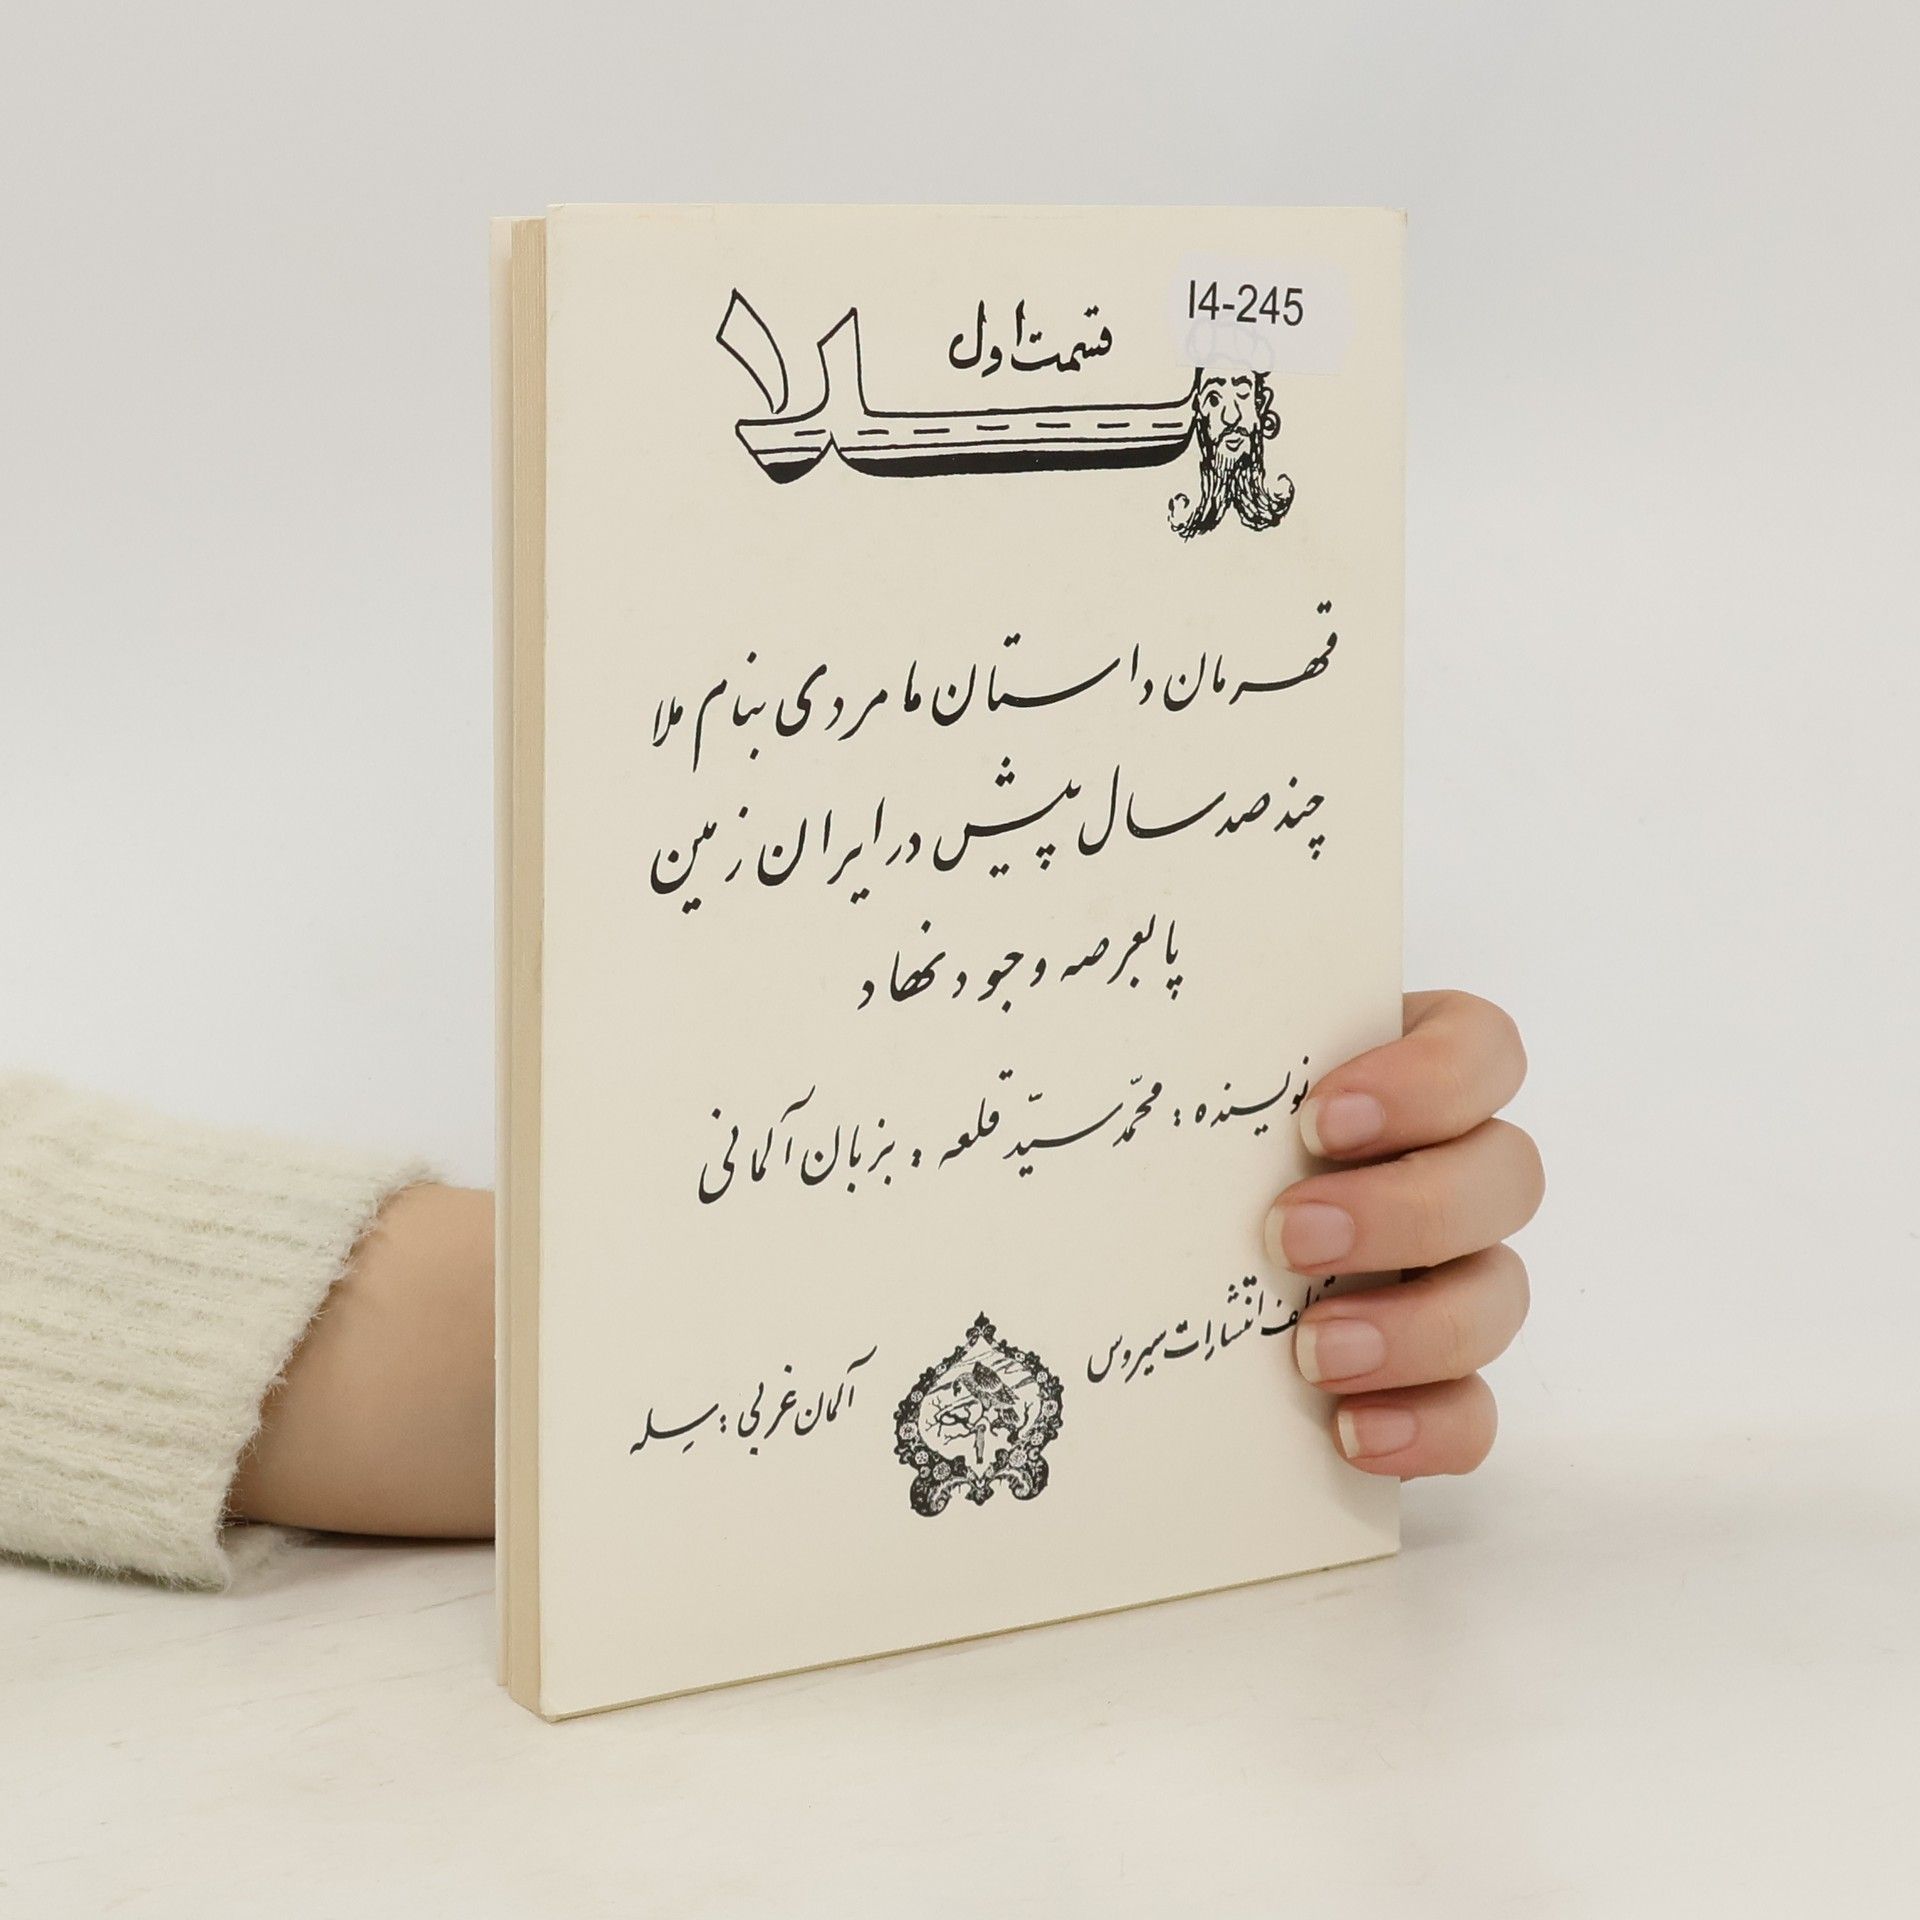 I4-245
قسمت اول
ملا
قهرمان داستان ما مردی بنام ملا
چند صد سال پیش در ایران زمین
پا بعرصه وجود نهاد
نویسنده : محمّد سیّد قلعه : بزبان آلمانی
انتشارات سیروس
آلمان غربی : سِله